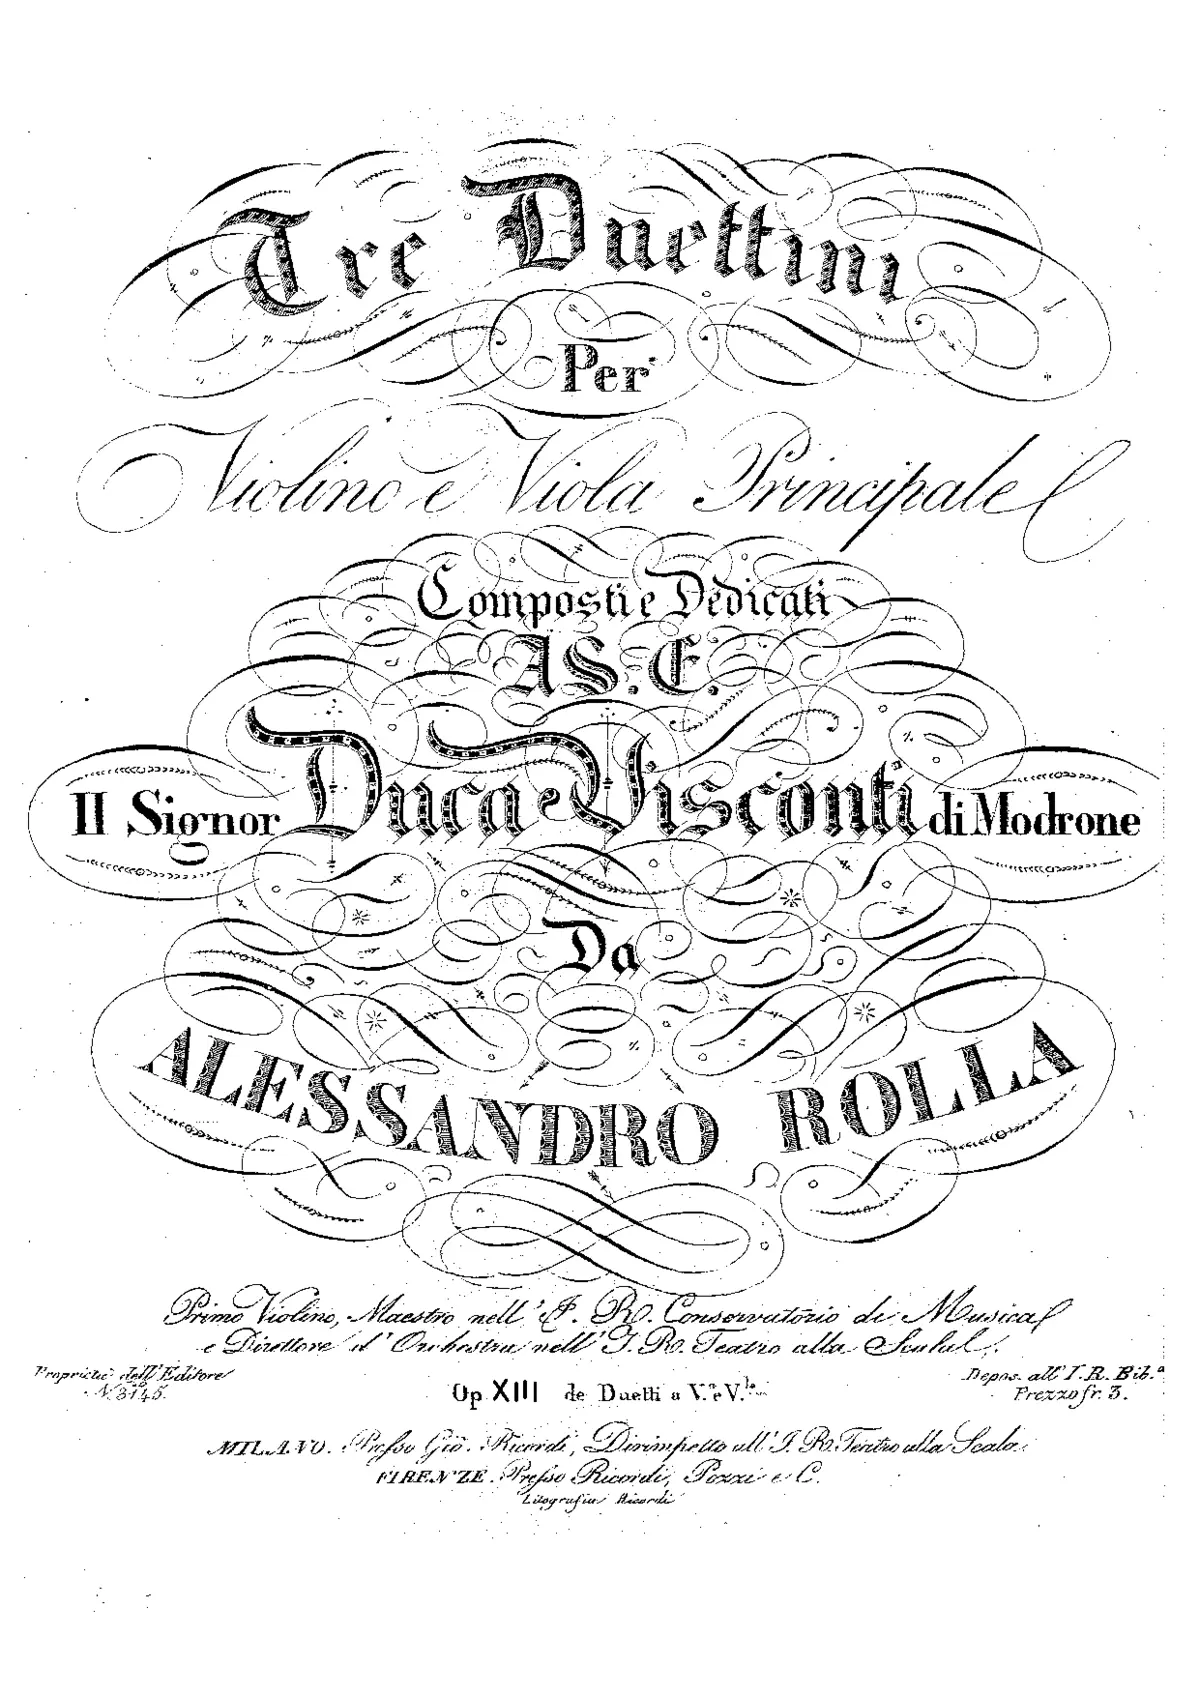 Tre Duettini
Per
Violino e Viola Principale
Composti e Dedicati
A S. E.
Il Signor Duca Visconti di Modrone
Da
ALESSANDRO ROLLA
Primo Violino, Maestro nell' I. R. Conservatorio di Musica
e Direttore d' Orchestra nell' I. R. Teatro alla Scala.
Proprietà dell' Editore
N. 3145.
Op. XIII de Duetti a V.º e V.la
Depos. all' I. R. Bib.a
Prezzo fr. 3.
MILANO. Presso Gio. Ricordi, Dirimpetto all' I. R. Teatro alla Scala.
FIRENZE. Presso Ricordi, Pozzi e C.
Litografia Ricordi